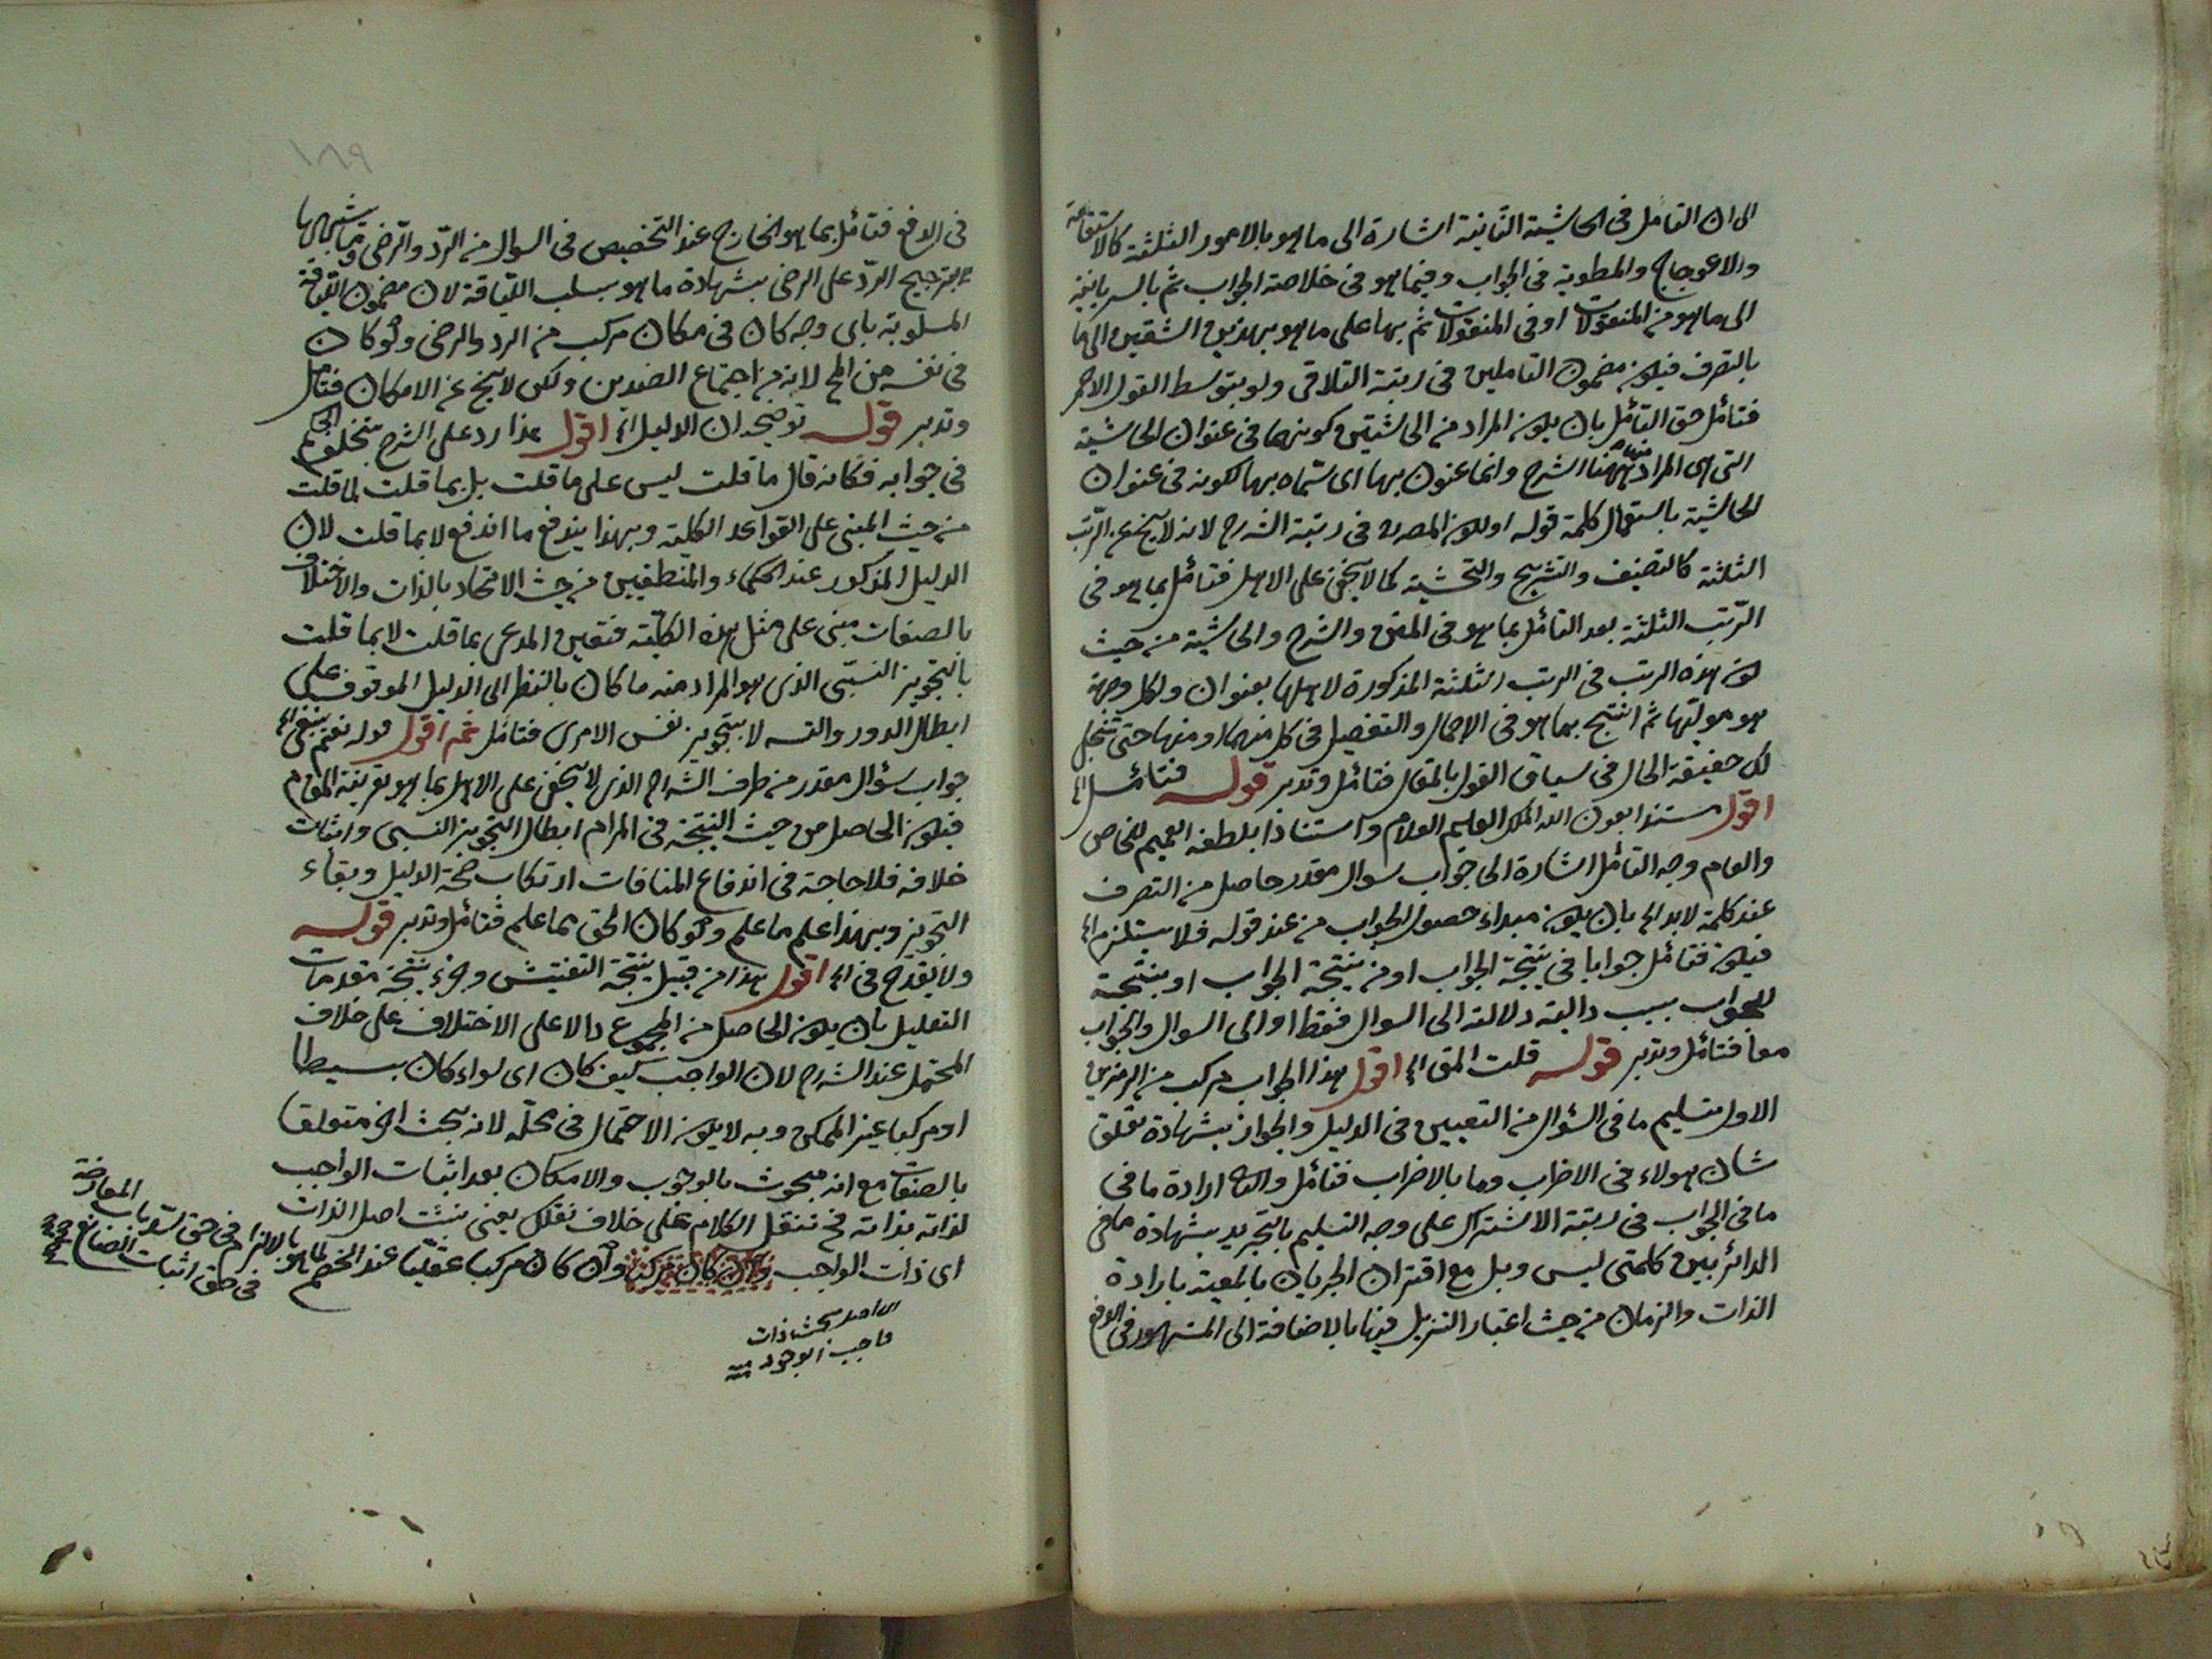 الى ان التأمل فى الحاشية الثانية اشارة الى ما هو بالامور الثلثة كالاستقامة
والاعوجاج والمطوية فى الجواب وفيما هو فى خلاصة الجواب ثم
الى ما هو من المنقولات او فى المنقولات ثم بها على ما هو بهذين الشقين الى ما
بالتصرف فيكون مضمون التاملين فى رتبة التلاقى ولو بتوسط القول الاحمر
فتأمل حق التأمل بان يكون المراد من الحاشيتين كونهما فى عنوان الحاشية
التى هى المراد منها ههنا الشرح وانما عنون بها اى سماه بها لكونه فى عنوان
الحاشية باستعمال كلمة قوله او لكون المصدر فى رتبة الشرح لانه لا يخ عن الرتب
الثلثة كالتصنيف والتشريح والتحشية كما لا يخفى على الاهل فتأمل بما هو فى
الرتب الثلثة بعد التأمل بما هو فى المتن والشرح والحاشية من حيث
هذه الرتب فى الرتب الثلثة المذكورة لاهلها بعنوان ولكل وجهة
هو موليها ثم انتج بما هو فى الاجمال والتفصيل فى كل منهما او منها حتى تنجلى
لك حقيقة الحال فى سياق القول بالمقال فتأمل وتدبر قوله فتأمل اه
اقول مستندا بعون الله الملك العليم العلام واستنادا بلطفه العميم للخاص
والعام وجه التأمل اشارة الى جواب سؤال مقدر حاصل من التصرف
عند كلمة لابد اه بان يكون مبداء حصول الجواب من عند قوله فلا يستلزم اه
فيكون فتأمل جوابا فى نتيجة الجواب او من نتيجة الجواب او بنتيجة
للجواب بسبب دالية دلالته الى السوال فقط او الى السوال والجواب
معا فتأمل وتدبر قوله قلت المق اه اقول هذا الجواب مركب من الرمزين
الاول تسليم ما فى السؤال من التعيين فى الدليل والجواز بشهادة تعلق
شان هولاء فى الاضراب وما بالاضراب فتأمل والثانى ارادة ما فى
ما فى الجواب فى رتبة الاشتراك على وجه التسليم بالتجريد بشهادة ما فى
الدائر بين كلمتى ليس وبل مع اقتران الجريان بالمعية بارادة
الذات والزمان من حيث اعتبار التنزيل فيها بالاضافة الى المشهور فى الدفع
١٨٩
فى الدفع فتأمل بما هو الخارج عند التخصيص فى السوال من الرد والرضى وما شبههما
بترجيح الرد على الرضى بشهادة ما هو بسلب اللياقة لان مضمون اللياقة
المسلوبة باى وجه كان فى مكان مركب من الرد والرضى ولو كان
فى نفسه من المح لانه من اجتماع الضدين ولكن لا يخ عن الامكان فتأمل
وتدبر قوله توضيحه ان الدليل اه اقول هذا رد على الشرح بتخلف
فى جوابه فكانه قال ما قلت ليس على ما قلت بل بما قلت لما قلت
من حيث المبنى على القواعد الكلية وبهذا يندفع ما اندفع لا بما قلت لان
الدليل المذكور عند الحكماء والمنطقيين من حيث الاتحاد بالذات والاختلاف
بالصفات مبنى على مثل هذه الكلية فتعين المدعى بما قلت لا بما قلت
بالتجويز النسبى الذى هو المراد منه ما كان بالنظر الى الدليل الموقوف على
ابطال الدور والتسه لا بتجويز نفس الامرى فتأمل ثم اقول قوله نعم ينبغى اه
جواب سؤال مقدر من طرف الشراح الذى لا يخفى على الاهل بما هو بقرينة المقام
فيكون الحاصل من حيث النتيجة فى المرام ابطال التجويز النسبى واثبات
خلافه فلا حاجة فى اندفاع المنافات ارتكاب صحة الدليل وبقاء
التجويز وبهذا علم ما علم ولو كان الحق بما علم فتأمل وتدبر قوله
ولا يقدح فى اه اقول هذا من قبيل نتيجة التفتيش وجزء نتيجة مقدمات
التعليل بان يكون الحاصل من المجموع دالا على الاختلاف على خلاف
المحتمل عند الشراح لان الواجب كيف كان اى سواء كان بسيطا
او مركبا غير الممكن وبه لا يكون الاحتمال فى محله لانه بحث اخر متعلق
بالصفات مع انه مبحوث بالوجوب والامكان بعد اثبات الواجب
لذاته بذاته فح تنقل الكلام على خلاف نقلك يعنى يثبت اصل الذات
اى ذات الواجب وان كان مركبا وان كان مركبا عقليا عند الخصم لما هو
بالالزام فى حق
المعارضة
فى حق اثبات الصانع
بحث ذات
واجب الوجود